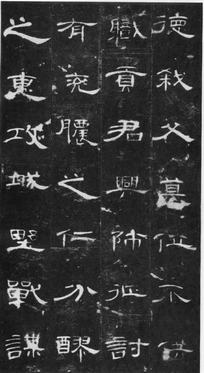 德弒父篡位不供
職貢君興師征討
有兖膿之仁分醪
之惠攻城野戰謀